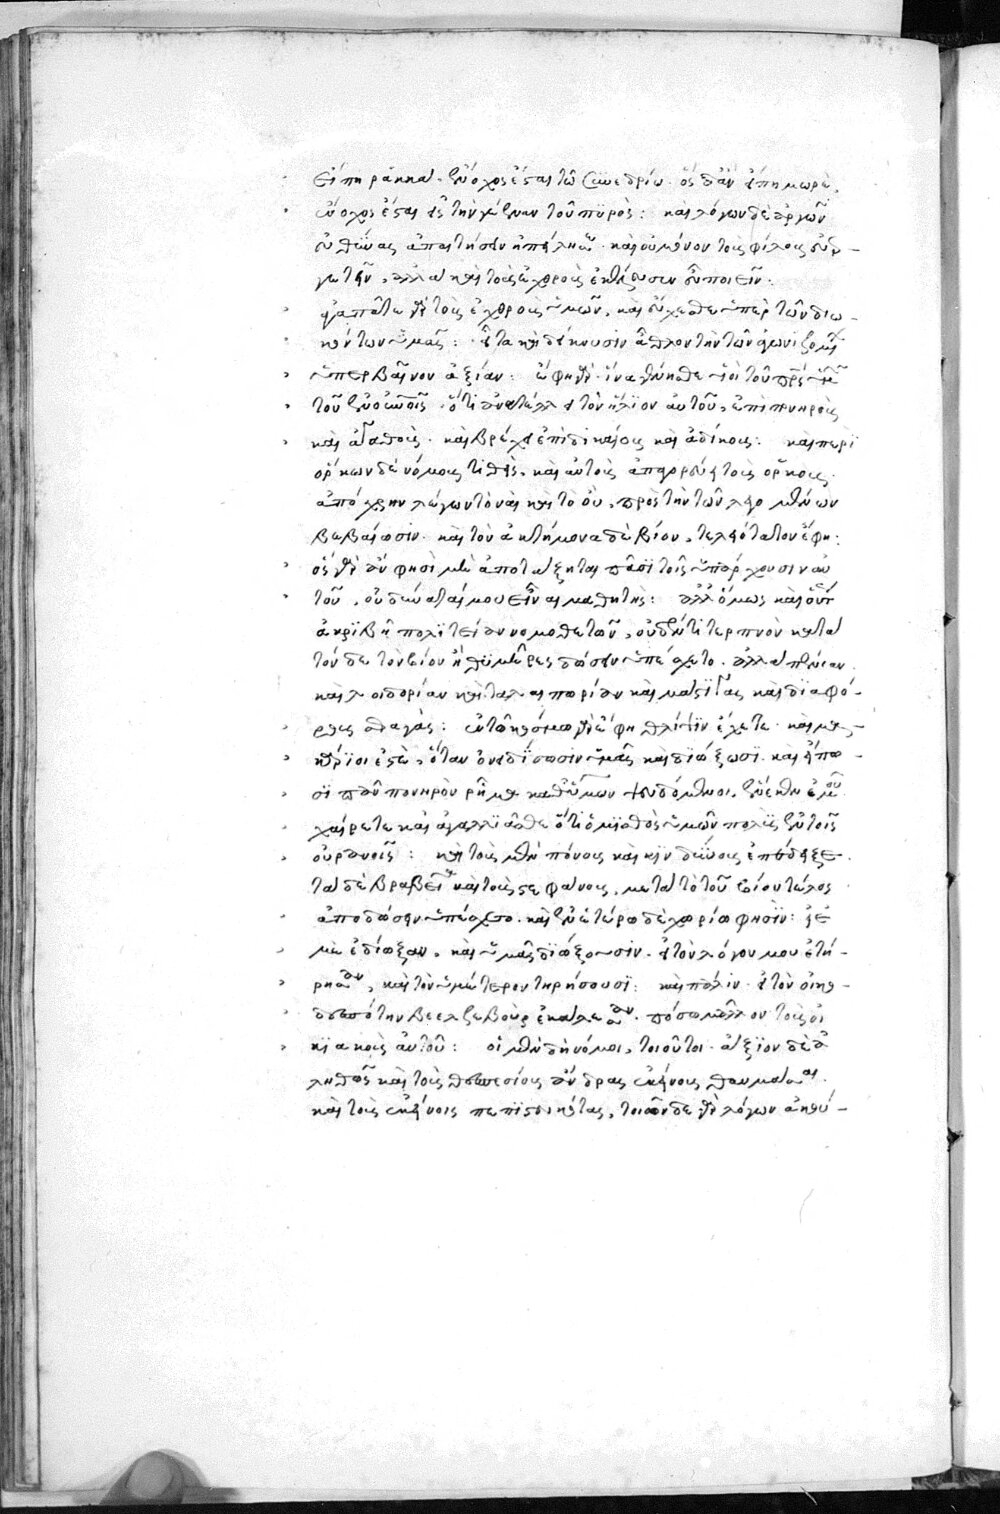 εἴπη ῥακκά· ἔνοχος ἔσται τῶ συνεδρίω· ὃς δ' ἂν εἴπη μωρὲ,
ἔνοχος ἔσται εἰς τὴν γέενναν τοῦ πυρός: καὶ λόγων δὲ ἀργῶν
εὐθύνας ἀπαιτήσειν ἠπείλησεν· καὶ οὐ μόνον τοὺς φίλους εὐερ-
γετεῖν, ἀλλὰ καὶ τοὺς ἐχθροὺς ἐκέλευσεν εὖ ποιεῖν:
ἀγαπᾶτε γὰρ τοὺς ἐχθροὺς ὑμῶν, καὶ εὔχεσθε ὑπὲρ τῶν διω-
κόντων ὑμᾶς: εἶτα καὶ δείκνυσιν ἆθλον τὴν τῶν ἀγωνιζομένων
ὑπερβαῖνον ἀξίαν: ἔφη γὰρ ἵνα γένησθε υἱοὶ τοῦ πρς ὑμῶν
τοῦ ἐν οὐνοῖς· ὅτι ἀνατέλλει τὸν ἥλιον αὐτοῦ, ἐπὶ πονηροὺς
καὶ ἀγαθοὺς· καὶ βρέχει ἐπὶ δικαίους καὶ ἀδίκους: καὶ περὶ
ὅρκων δὲ νόμους τιθεὶς, καὶ αὐτοὺς ἀπαγορεύει τοὺς ὅρκους·
ἀπόχρην λέγων τὸ ναὶ καὶ τὸ οὒ, πρὸς τὴν τῶν λεγομένων
βεβαίωσιν· καὶ τὸν ἀκτήμονα δὲ βίον, τελεώτατον ἔφη:
ὃς γὰρ ἂν φησὶ μὴ ἀποτάξηται πᾶσι τοῖς ὑπάρχουσιν αὐ
τοῦ, οὐ δύναταί μου εἶναι μαθητής: ἀλλ' ὅμως καὶ οὕτως
ἀκριβῆ πολιτείαν νομοθετῶν, οὐδέν τι τερπνὸν κατὰ
τόνδε τὸν βίον ἢ θυμῆρες δώσειν ὑπέσχετο· ἀλλὰ πενίαν
καὶ λοιδορίαν καὶ ταλαιπωρίαν καὶ μάστιγας καὶ διαφό-
ρους σφαγάς: ἐν τῶ κόσμω γὰρ ἔφη θλίψιν ἔχετε· καὶ μακ-
κάριοι ἐστὲ, ὅταν ὀνειδίσωσιν ὑμᾶς καὶ διώξωσι· καὶ εἴπω-
σι πᾶν πονηρὸν ῥῆμα καθ' ὑμῶν ψευδόμενοι, ἕνεκεν ἐμοῦ·
χαίρετε καὶ ἀγαλλιᾶσθε ὅτι ὁ μισθὸς ὑμῶν πολὺς ἐν τοῖς
οὐρανοῖς: καὶ τοὺς μὲν πόνους καὶ κινδύνους ἐπέδειξε·
τὰ δὲ βραβεῖα καὶ τοὺς στεφάνους, μετὰ τὸ τοῦ βίου τέλος
ἀποδώσειν ὑπέσχετο· καὶ ἐν ἑτέρω δὲ χωρίω φησίν: εἰ ἐ
μὲ ἐδίωξαν, καὶ ὑμᾶς διώξουσιν· εἰ τὸν λόγον μου ἐτή-
ρησαν, καὶ τὸν ὑμέτερον τηρήσουσι: καὶ πάλιν· εἰ τὸν οἰκο-
δεσπότην βεελζεβοὺλ ἐκάλεσαν· πόσω μᾶλλον τοὺς οἰ
κιακοὺς αὐτοῦ: οἱ μὲν δὴ νόμοι, τοιοῦτοι· ἄξιον δὲ ἀ
ληθῶς καὶ τοὺς θεσπεσίους ἄνδρας ἐκείνους θαυμάσαι·
καὶ τοὺς ἐκείνοις πεπιστευκότας, τοιῶνδε γὰρ λόγων ἀκού-